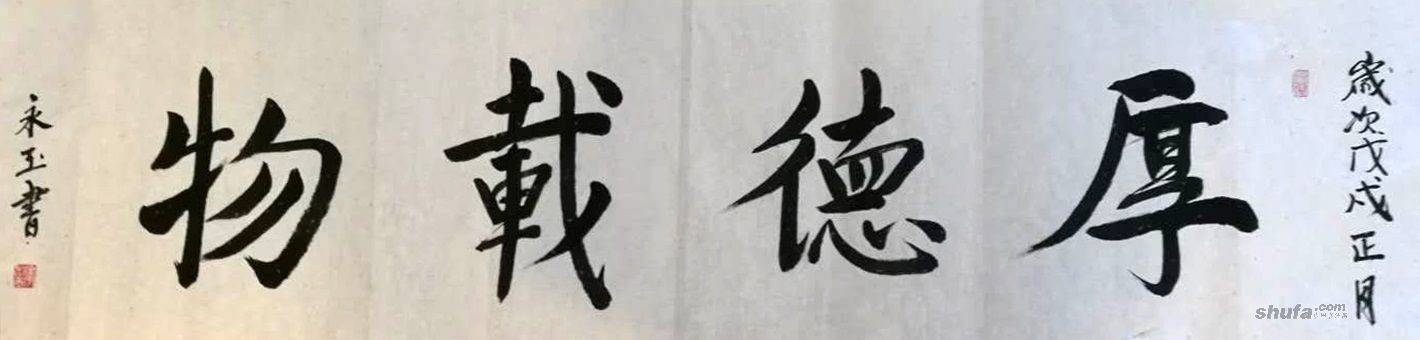 歲次戊戌正月
厚德載物
永玉書
shufa.com